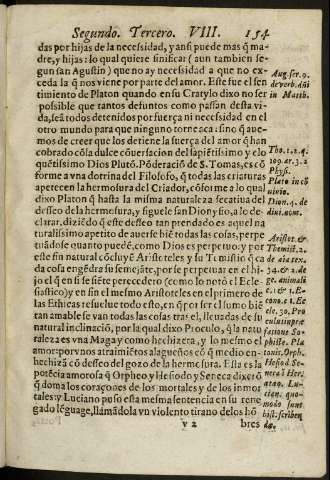 Segundo. Tercero. VIII. 154
das por hijas de la necessidad, y ansi puede mas q̃ ma-
dre, y hijas: lo qual quiere sinificar ( aun tambien se-
gun san Agustin ) que no ay necessidad a que no ex-
ceda la q̃ nos viene por parte del amor. Este fue el sen
timiento de Platon quando en su Cratylo dixo no ser
possible que tantos defuntos como passan desta vi-
da, seã todos detenidos por fuerça ni necessidad en el
otro mundo para que ninguno torne aca: sino q̃ aue-
mos de creer que los detiene la fuerça del amor q̃ han
cobrado cõ la dulce cõuersacion del sapiẽtissimo y elo
quẽtissimo Dios Plutõ. Põderaciõ de S. Tomas, es cõ
forme a vna dotrina del Filosofo, q̃ todas las criaturas
apetecen la hermosura del Criador, cõforme a lo qual
dixo Platon q̃ hasta la misma naturaleza se catiua del
desseo de la hermosura, y siguele san Dionysio, a lo de-
clarar, diziẽdo q̃ este desseo tan prendado es aquel na
turalissimo apetito de auerse biẽ todas las cosas, perpe
tuãdose quanto puedẽ, como Dios es perpetuo: y por
este fin natural cõcluyẽ Aristoteles y su Temistio q̃ ca
da cosa engẽdra su semejãte, por se perpetuar en el hi-
jo el q̃ en si se siẽte perecedero (como lo notò el Ecle-
siastico) y en sin el mesmo Aristoteles en el primero de
las Ethicas resuelue todo esto, en q̃ por ser el sumo biẽ
tan amable se van todas las cosas tras el, lleuadas de su
natural inclinaciõ, por la qual dixo Proculo, q̃ la natu
raleza es vna Maga y como hechizera, y lo mesmo el
amor: por vnos atraimiẽtos alagueños cõ q̃ medio en-
hechizã cõ desseo del gozo de la hermosura. Esta es la
potẽcia amorosa q̃ Orpheo y Hesiodo y Seneca dixerõ
q̃ doma los coraçones de los mortales y de los inmor
tales: y Luciano puso esta mesma sentencia en su rene
gado lẽguage, llamãdola vn violento tirano de los hõ
v 2 bres
Aug. ser. 9.
de verb. dñi
in Matth.
Tho. 1. 2. q.
109. ar. 3. 2
Phys.
Plato in cõ
uiuio.
Dion. 4. de
diui. nom.
Aristot. &
Themist. 2.
de aĩa tex.
34. & 2. de
ge. animaliũ
c. 1 & 1. E-
cono. c. 1. Ec
cle. 30. Pro
culus in præ
fatione So-
phiste. Pla
tonis. Orph.
Hesiod Se-
neca i Her.
Luc.
cian. quo-
modo sunt
hist. scriben
dæ.